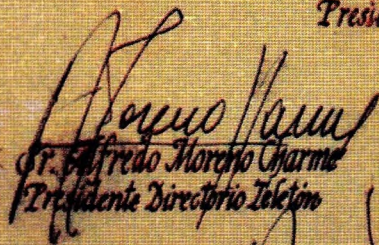 Presi
Sr. Alfredo Moreno Charme
Presidente Directorio Teletón